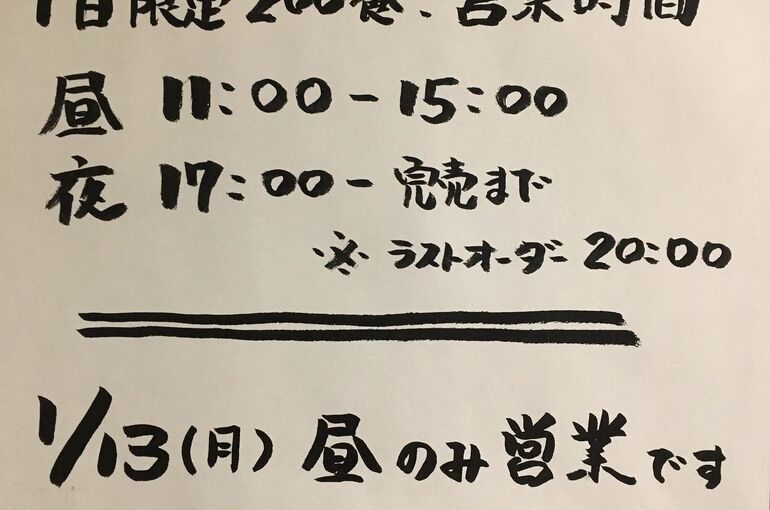 1日限定200食、営業時間
昼 11:00-15:00
夜 17:00-完売まで
※ラストオーダー 20:00
1/13(月) 昼のみ営業です